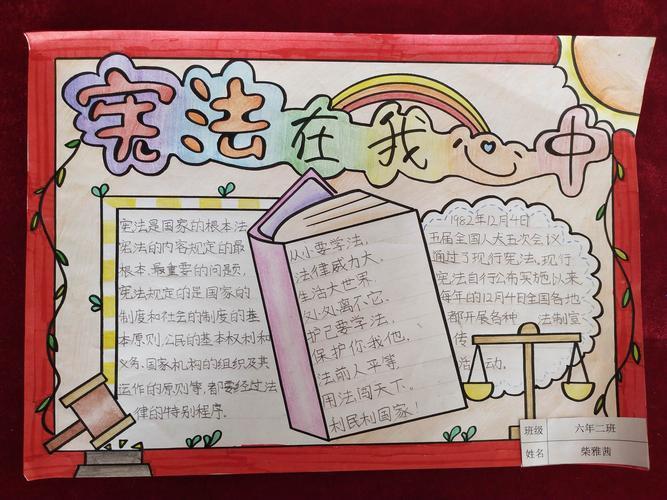 宪法在我心中
宪法是国家的根本法
宪法的内容规定的最
根本、最重要的问题,
宪法规定的是国家的
制度和社会的制度的基
本原则,公民的基本权利和
义务、国家机构的组织及其
运作的原则等,都要经过法
律的特别程序.
从小要学法,
法律威力大、
生活大世界,
处处离不它.
护己要学法,
保护你我他,
法前人平等,
用法闯天下。
利民利国家!
1982年12月4日
五届全国人大五次会议
通过了现行宪法、现行
宪法自行公布实施以来
每年的12月4日全国各地
都开展各种 法制宣
传
活动.
班级 六年二班
姓名 柴雅茜